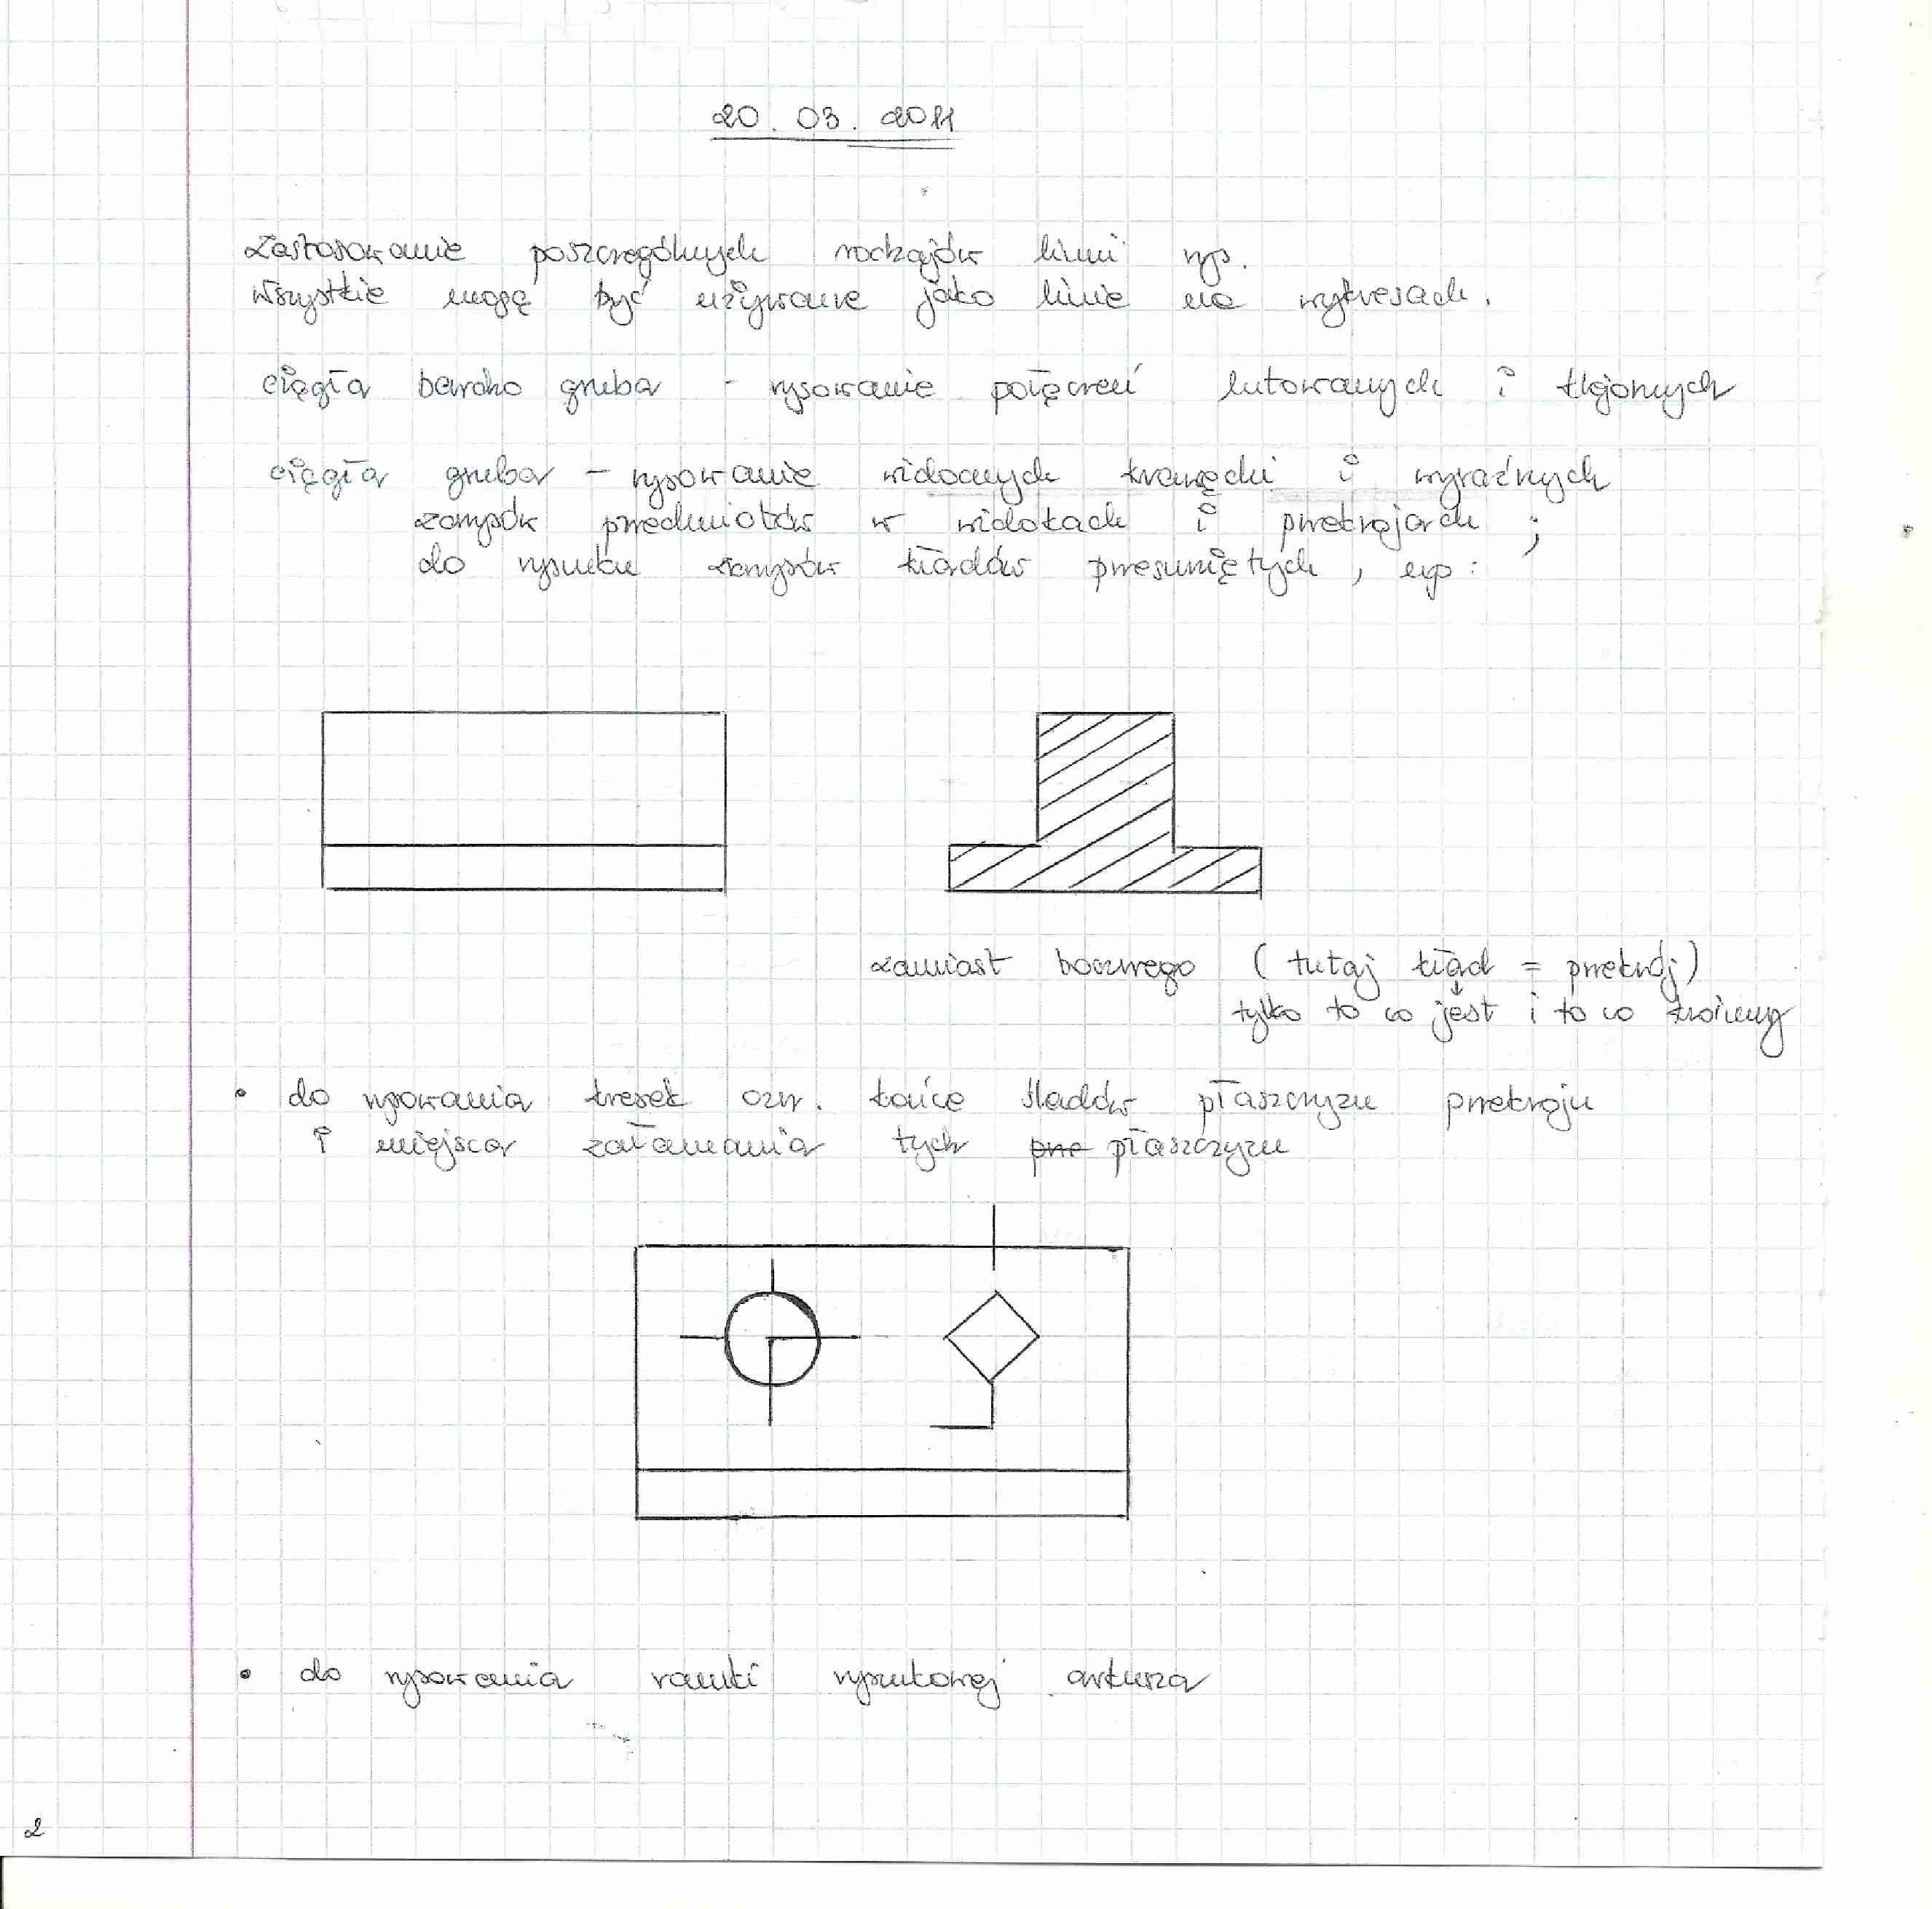 20. 03. 2011
Zastosowanie poszczególnych rodzajów linii rys.
Wszystkie mogą być używane jako linie na wykresach.
ciągła bardzo gruba - rysowanie połączeń lutowanych i klejonych
ciągła gruba - rysowanie widocznych krawędzi i wyraźnych
zarysów przedmiotów w widokach i przekrojach ;
do rysunku zarysów kładów przesuniętych , np :
zamiast bocznego ( tutaj kład = przekrój )
tylko to co jest i to co kroimy
• do rysowania kresek ozn. końce śladów płaszczyzn przekroju
i miejsca załamania tych prze płaszczyzn
• do rysowania ramki rysunkowej arkusza
2